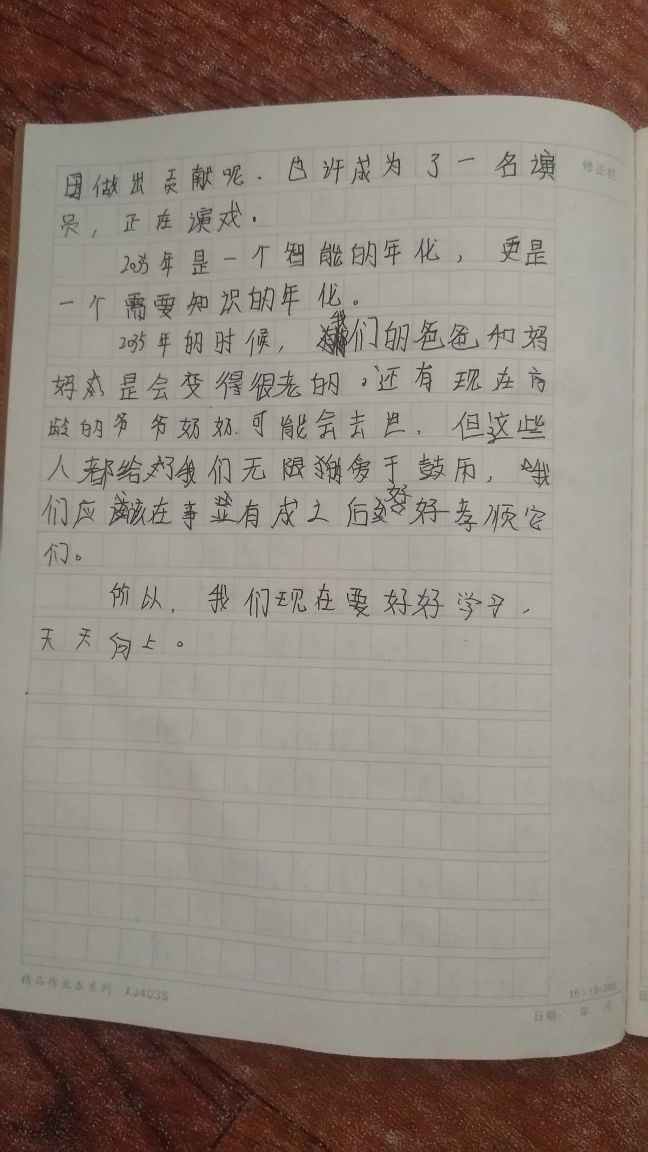 国做出贡献呢.也许成为了一名演
员,正在演戏。
2035年是一个智能的年化,更是
一个需要知识的年化。
2035年的时候,我们的爸爸和妈
妈是会变得很老的。还有现在高
龄的爷爷奶奶.可能会去世.但这些
人都给我们无限多于鼓历,我
们应该在事业有成之后好好孝顺它
们。
所以,我们现在要好好学习,
天天向上。
修正栏
精品作业本系列 XJ403S
15×19=285
日期: 年 月